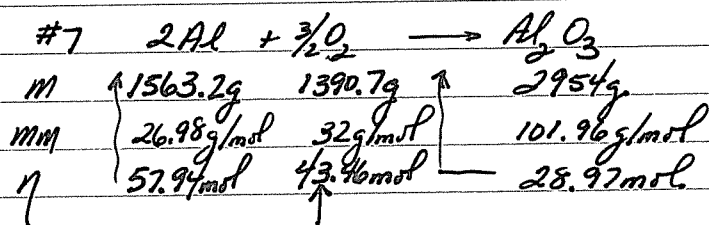 #7 2Al + 3/2 O2 → Al2O3
m 1563.2g 1390.7g 2954g.
mm 26.98g/mol 32g/mol 101.96g/mol
n 57.94mol 43.46mol 28.97mol.